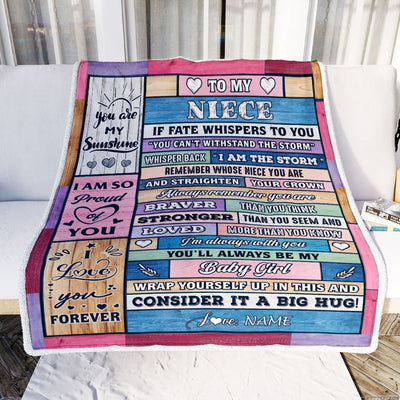 TO MY
NIECE
IF FATE WHISPERS TO YOU
"YOU CAN'T WITHSTAND THE STORM"
WHISPER BACK "I AM THE STORM"
REMEMBER WHOSE NIECE YOU ARE
AND STRAIGHTEN YOUR CROWN
Always remember you are
BRAVER THAN YOU THINK
STRONGER THAN YOU SEEM AND
LOVED MORE THAN YOU KNOW
I'm always with you
YOU'LL ALWAYS BE MY
Baby Girl
WRAP YOURSELF UP IN THIS AND
CONSIDER IT A BIG HUG!
Love, NAME
You are
MY
Sunshine
I AM SO
Proud
of
YOU
I
Love
you
FOREVER